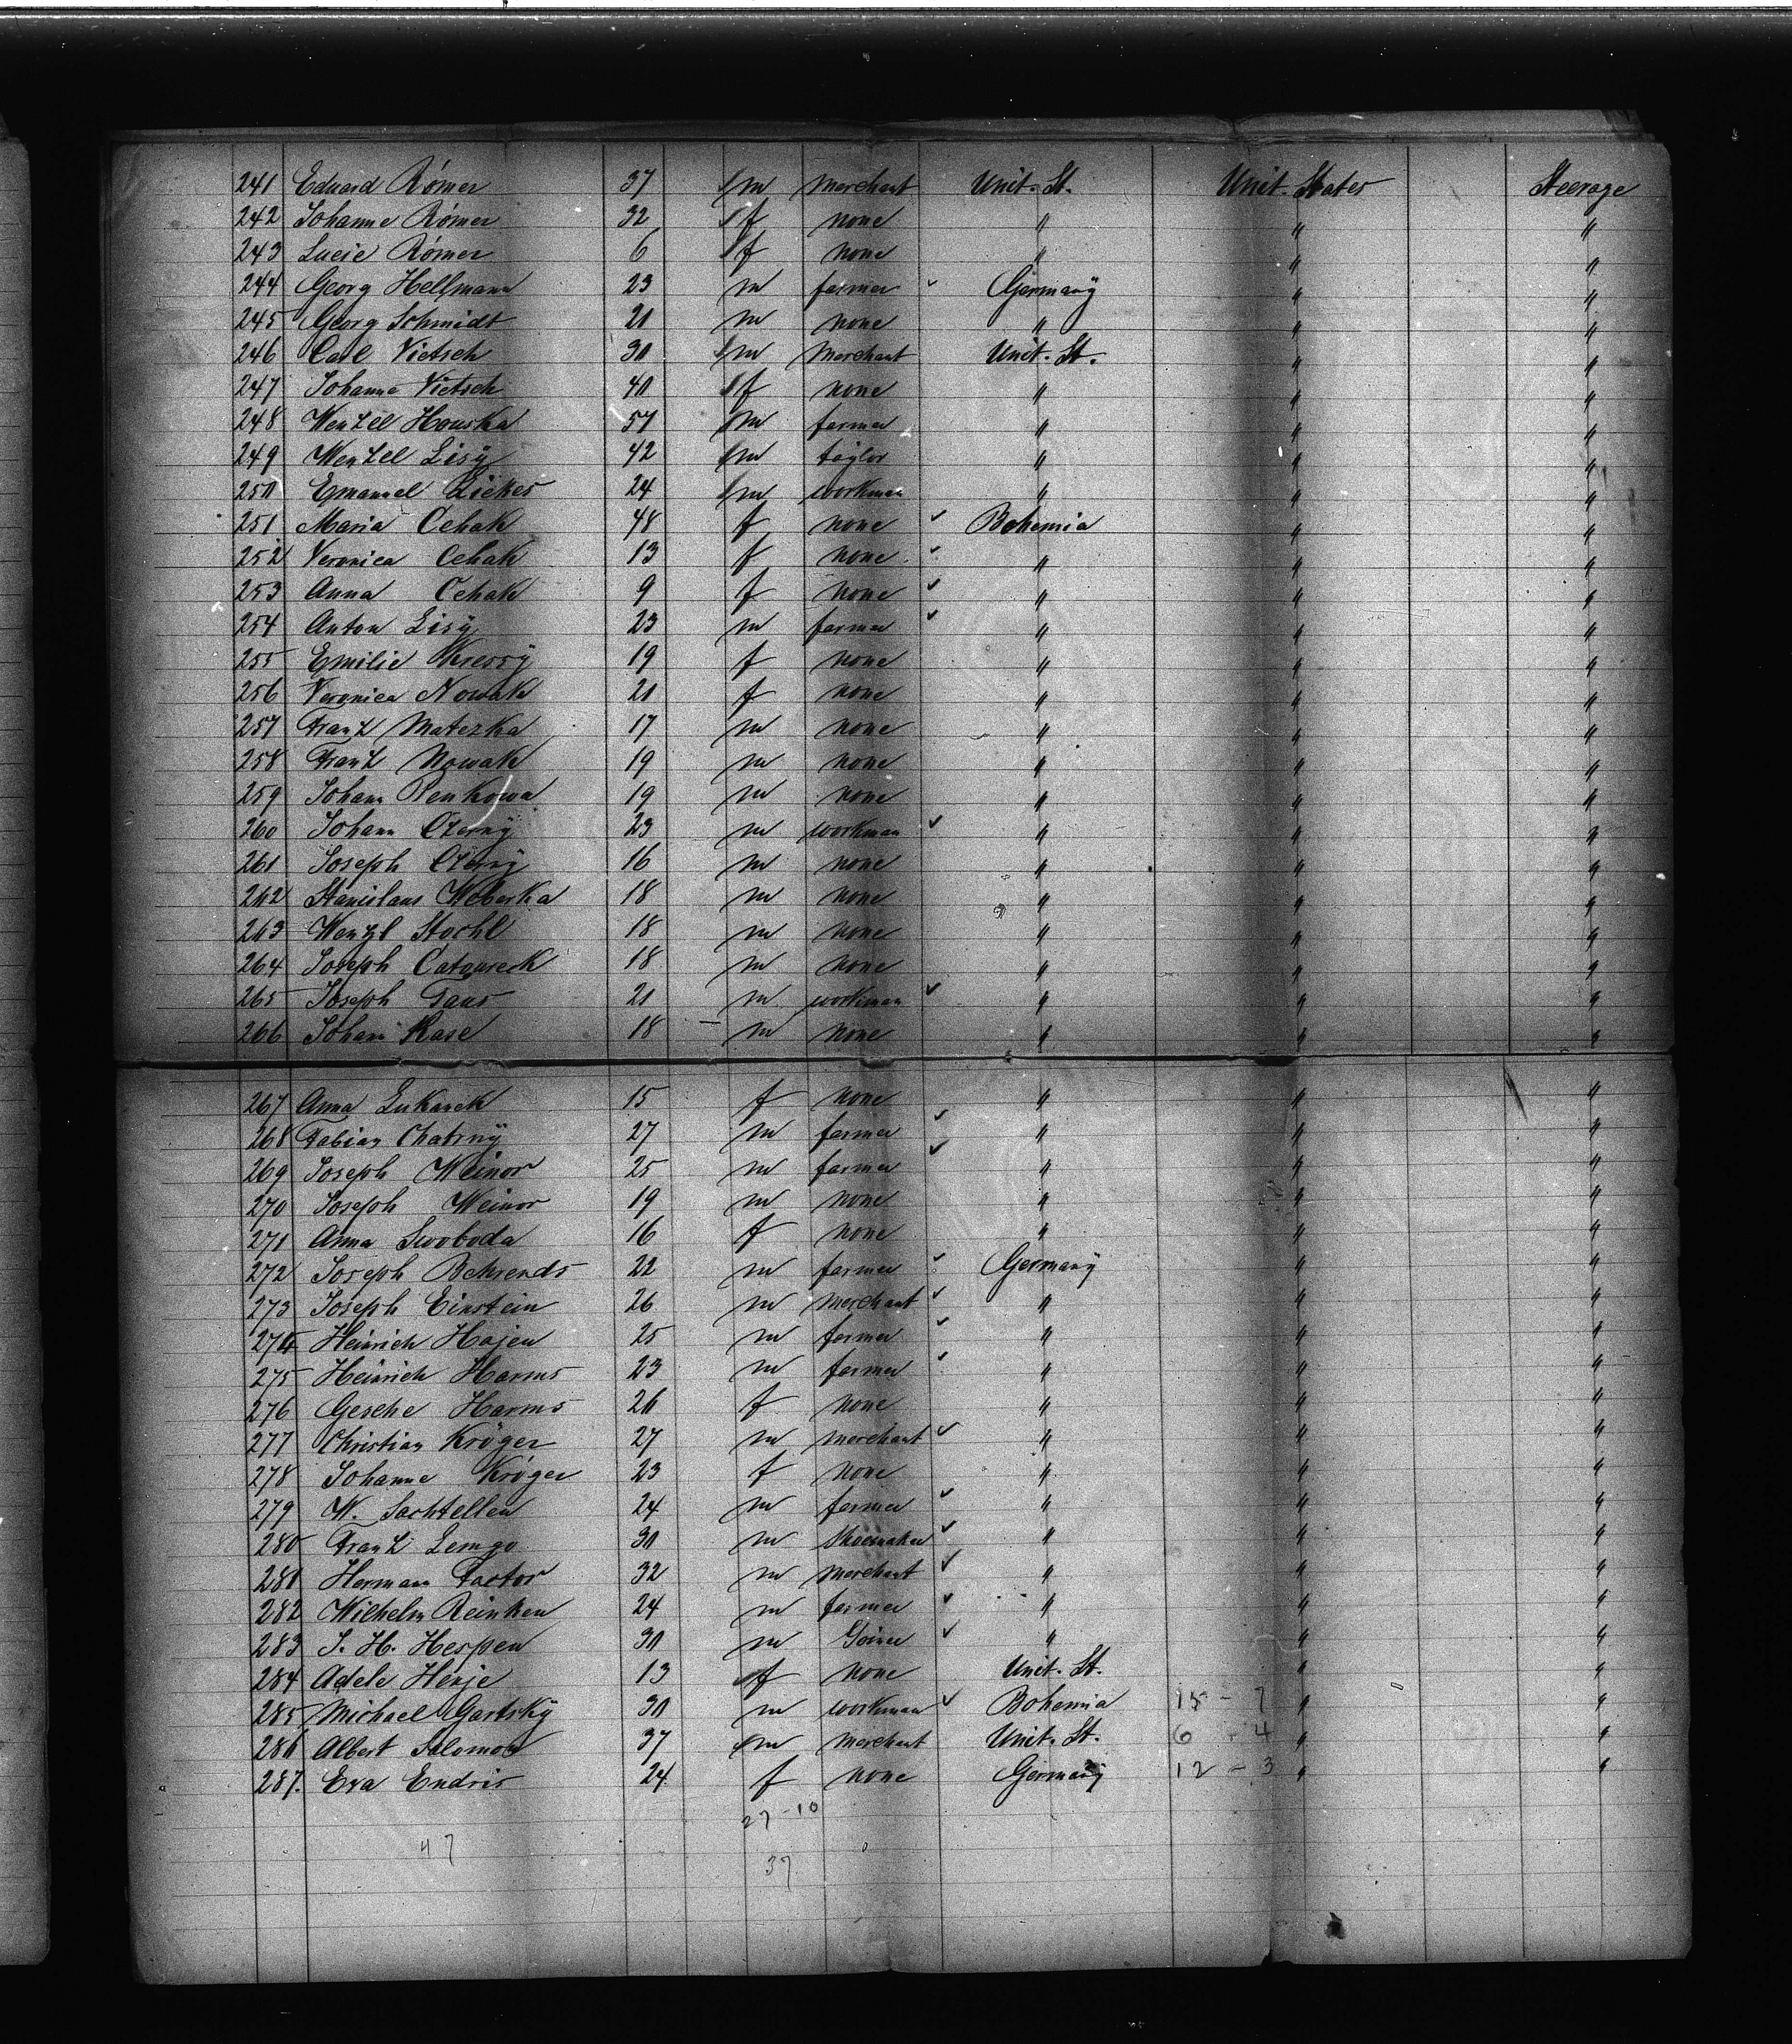 241 Eduard Römer 37 m merchant Unit. St. Unit. States Steerage
242 Johanne Römer 32 f none " " "
243 Lucie Römer 6 f none " " "
244 Georg Hellmann 23 m farmer Germany " "
245 Georg Schmidt 20 m none " " "
246 Carl Vietsch 30 m merchant Unit. St. " "
247 Johanne Vietsch 40 f none " " "
248 Wenzel Houska 57 m farmer " " "
249 Wenzel Lisÿ 42 m taylor " " "
250 Emanuel 24 m workman " " "
251 Maria Cehak 48 f none Bohemia " "
252 Veronica Cehak 13 f none " " "
253 Anna Cehak 9 f none " " "
254 Anton Lisÿ 23 m farmer " " "
255 Emilie 19 f none " " "
256 Veronica Nowak 20 f none " " "
257 Franz Matezka 17 m none " " "
258 Franz Nowak 19 m none " " "
259 Johann Penkowa 19 m none " " "
260 Johann Czernÿ 23 m workman " " "
261 Joseph Czernÿ 16 m none " " "
262 Stanislaus Weberka 18 m none " " "
263 Wenzl Stochl 18 m none " " "
264 Joseph 18 m none " " "
265 Joseph Taus 21 m workman " " "
266 Johann Kase 18 m none " " "
267 Anna Lukasek 15 f none " " "
268 Fabian Chatrnÿ 27 m farmer " " "
269 Joseph Weinor 25 m farmer " " "
270 Joseph Weinor 19 m none " " "
271 Anna Swoboda 16 f none " " "
272 Joseph Behrends 22 m farmer Germany " "
273 Joseph Einstein 26 m merchant " " "
274 Heinrich Hajen 25 m farmer " " "
275 Heinrich Harms 23 m farmer " " "
276 Gesche Harms 20 f none " " "
277 Christian Kröger 27 m merchant " " "
278 Johanne Kröger 23 f none " " "
279 W. Sachtellen 24 m farmer " " "
280 Franz Lemgo 30 m shoemaker " " "
281 Hermann Factor 32 m merchant " " "
282 Wilhelm Reinken 24 m farmer " " "
283 J. H. Hespen 30 m Joiner " " "
284 Adele Henje 13 f none Unit. St. " "
285 Michael Gartskÿ 30 m workman Bohemia 15 - 7 " "
286 Albert Salomon 37 m merchant Unit. St. 6 - 4 " "
287. Eva Endris 24 f none Germany 12 - 3 " "
27 - 10
47
37